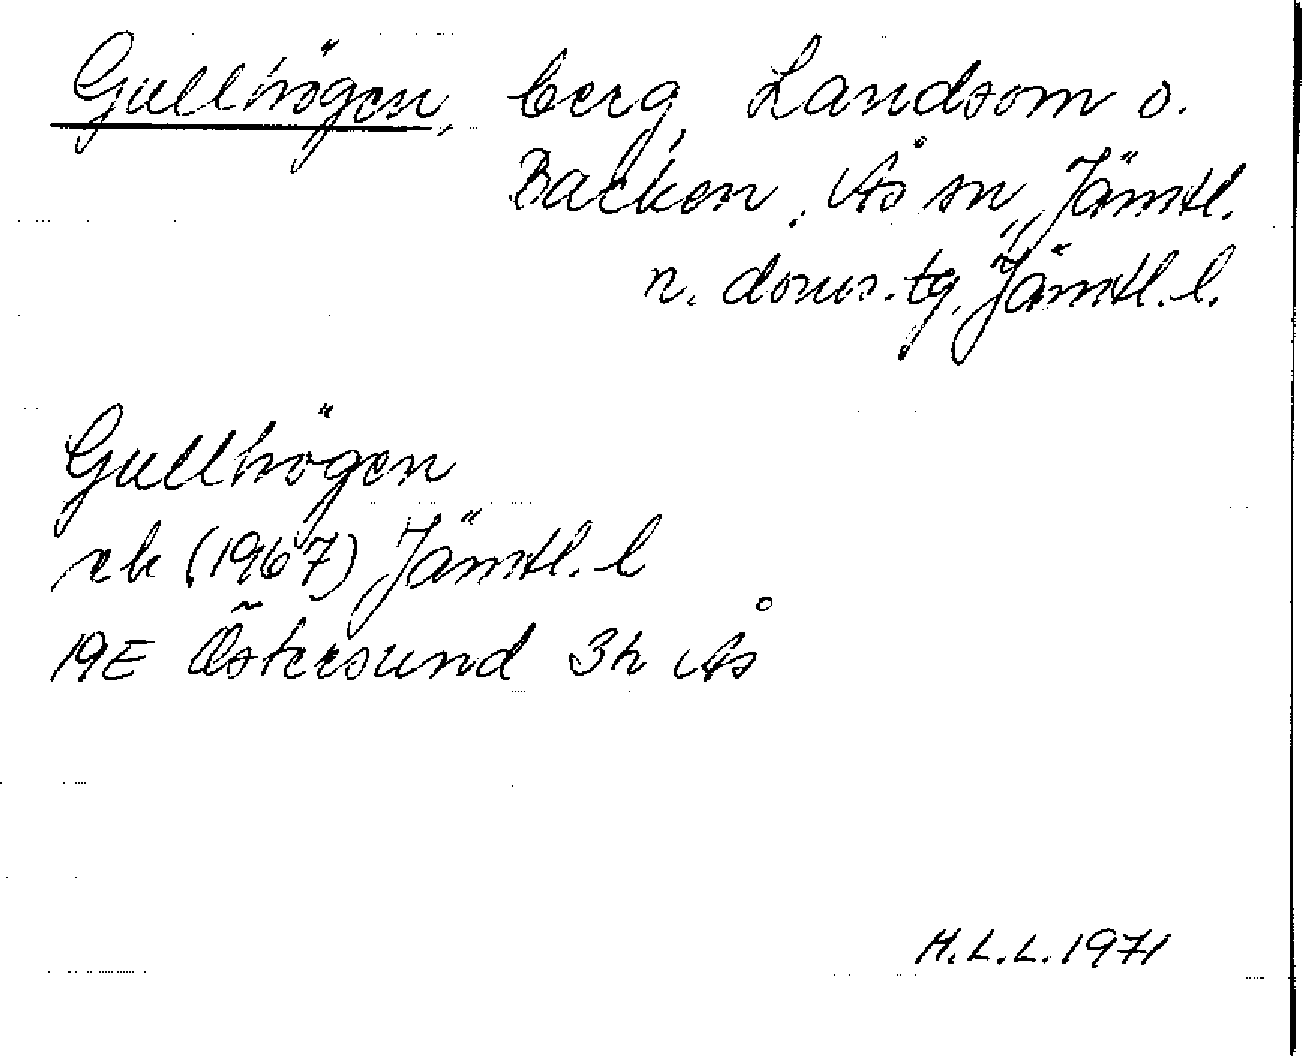 Gullhögen, berg, Landsom o.
Backen, Ås sn, Jämtl.
n. doms. tg, Jämtl. l.
Gullhögen
ek (1967) Jämtl. l
19E Östersund 3h Ås
H.L.L. 1971